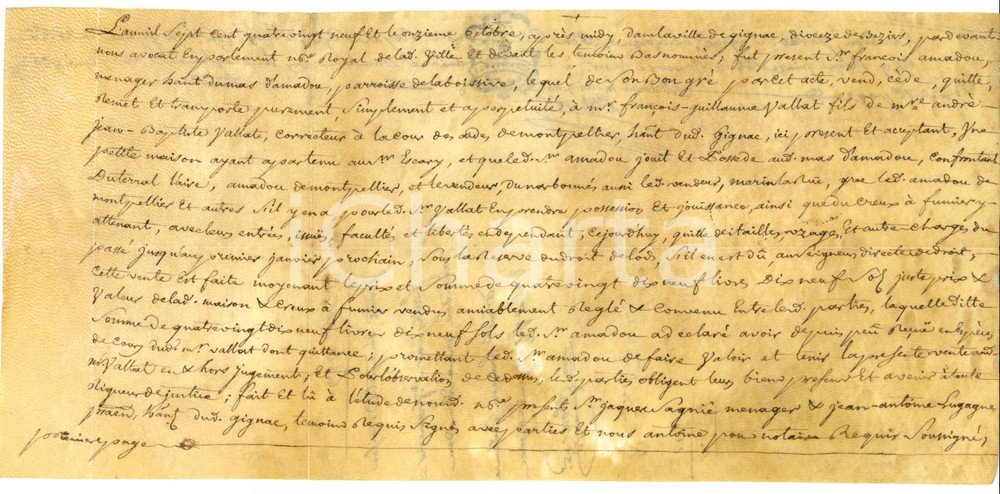 L'an mil sept cent quatre vingt neuf et le onzieme octobre, apres midy, dans la ville de gignac, dioceze de Bezirs, pardevant
nous avocat en parlement no.re Royal de lad. ville et devant les temoins bas nommés; fut present Sr. françois amadou,
menager habt du mas d'amadou, parroisse de la boissiere, lequel de son bon gré par cet acte, vend, cède, quitte,
remet et transporte purement, simplement et a perpetuité, à mr. françois-guillaume vallat fils de mre andré-
jean-Baptiste vallat, correcteur à la cour des aides de montpellier, habt dud. gignac, ici present et aceptant, une
petite maison ayant apartenu au Sr. Escary, et que led. Sr. amadou jouit et possede aud. mas d'amadou, confrontant
Du terral l'aire, amadou de montpellier, et le vendeur, du narbonnés aussi led. vendeur, marin la rue, grec led. amadou de
montpellier et autres s'il y en a pour led. Sr. vallat en prendre possession et jouissance, ainsi que du creux à fumier y
attenant, avec leurs entrées, issues, facultés et libertés en dependant, cejourdhuy, quitte de tailles, et autre charges du
passé jusqu'au premier janvier prochain, sous la reserve du droit de lods, s'il en est dû au seigneur directe de droit;
cette vente est faite moyenant le prix et somme de quatre vingt dix neuf livres dix neuf sols juste prix &
valeur de lad. maison & creux à fumier vendus amiablement reglé & convenu entre led. parties, laquelle ditte
somme de quatre vingt dix neuf livres dix neuf sols led. Sr. amadou a declaré avoir depuis peu reçue en especes
de cours dud. mr. vallat dont quittence; promettant led. Sr. amadou de faire valoir et tenir la presente vente aud.
mr vallat en & hors jugement; et pour l'observation de ce dessus, led. parties obligent leurs biens presens et avenir à toute
rigueur de justice; fait et lû à l'étude de nousd. no.re presents Sr. jaques Sagnié menager & jean-antoine Lugagne
praen, habt dud. gignac, temoins requis signes avec parties et nous antoine notaire requis soussignés,
premiere page
iCharta